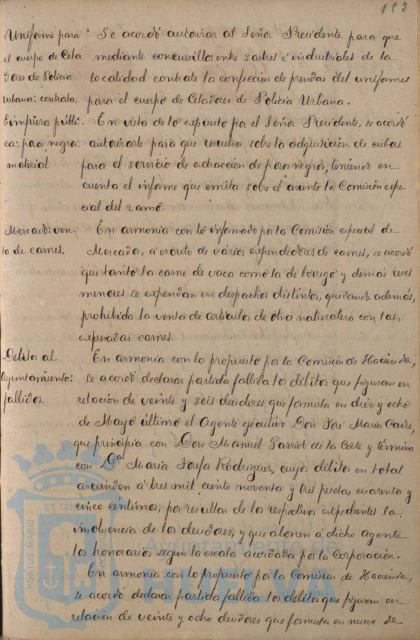 Uniforme para
el cuerpo de Cela
dores de Policía
urbana: contrata.
Se acordó autorizar al Señor Presidente para que
mediante concursillo entre sastres e industriales de la
localidad contrate la confección de prendas del uniforme
para el cuerpo de Celadores de Policía Urbana.
Limpieza públi-
ca: pozos negros:
material
En vista de lo expuesto por el Señor Presidente, se acordó
autorizarle para que resuelva sobre la adquisición de cubas
para el servicio de extracción de pozos negros, teniendo en
cuenta el informe que emita sobre el asunto la Comisión espe-
cial del ramo.
Mercado: ven-
ta de carnes.
En armonía con lo informado por la Comisión especial de
Mercado, a escrito de varios expendedores de carnes, se acordó
que tanto la carne de vaca como la de borrego y demás reses
menores se expendan en despachos distintos, quedando además,
prohibida la venta de artículos de otra naturaleza con las
expresadas carnes.
Débitos al
Ayuntamiento:
fallidos.
En armonía con lo propuesto por la Comisión de Hacienda,
se acordó declarar partida fallida los débitos que figuran en
relación de veinte y seis deudores que formula en diez y ocho
de Mayo último el Agente ejecutivo Don José María
que principia con Don Manuel Garrido de la y termina
con Dª María Josefa Rodríguez, cuyo débito en total
ascienden a tres mil ciento noventa y tres pesetas cuarenta y
cinco céntimos, por resultar de los respectivos expedientes la
insolvencia de los deudores, y que abonen a dicho agente
los honorarios según la escala acordada por la Corporación.
En armonía con lo propuesto por la Comisión de Hacienda,
se acordó declarar partida fallida los débitos que figuran en
relación de veinte y ocho deudores que formula en nueve de